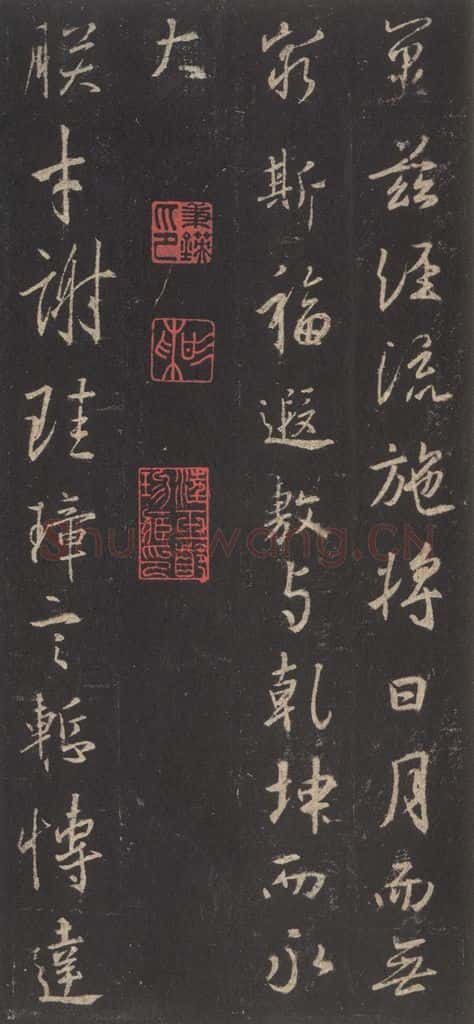 冀茲經流施將日月而無
窮斯福遐敷与乾坤而永
大
朕才謝珪璋言慙愽達
shufawang.CN